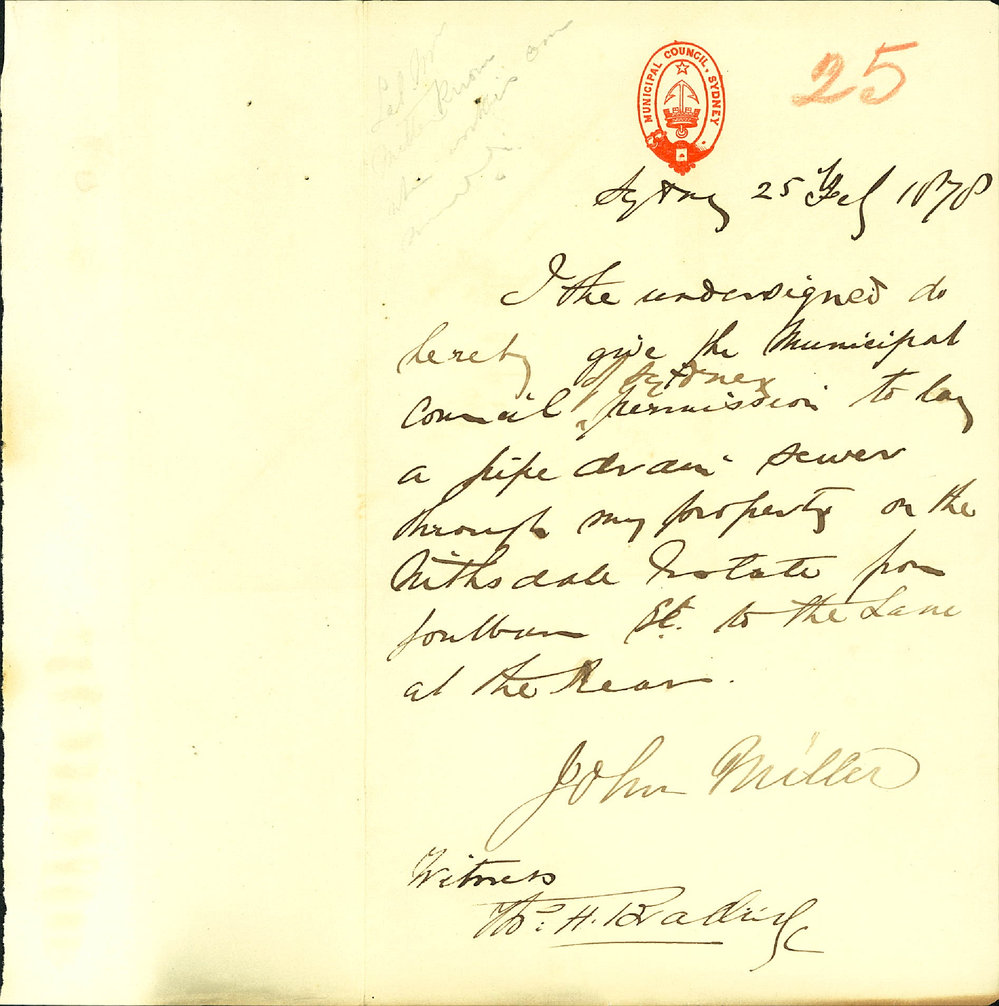 MUNICIPAL COUNCIL, SYDNEY
25
Sydney 25 Feb 1878
I the undersigned do
hereby give the Municipal
of Sydney
Council permission to lay
a pipe drain sewer
through my property on the
Nithsdale Estate from
Goulburn St. to the Lane
at the Rear.
John Miller
Witness
Thos. H. Bradridge